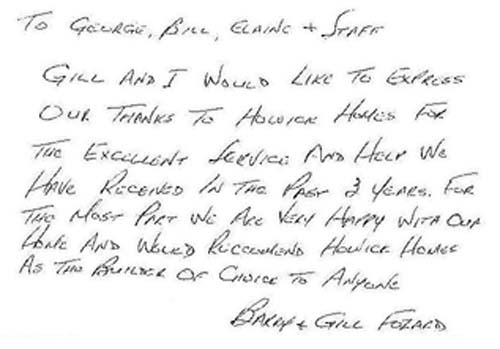 To George, Bill, Elaine + Staff
Gill and I would like to express
our thanks to Howick Homes for
the excellent service and help we
have received in the past 3 years. For
the most part we are very happy with our
home and would reccomend Howick Homes
as the builder of choice to anyone
Barry + Gill Fozard